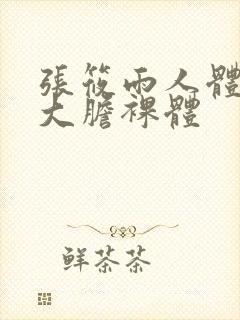 張筱雨人體
大膽裸體
鮮茶茶